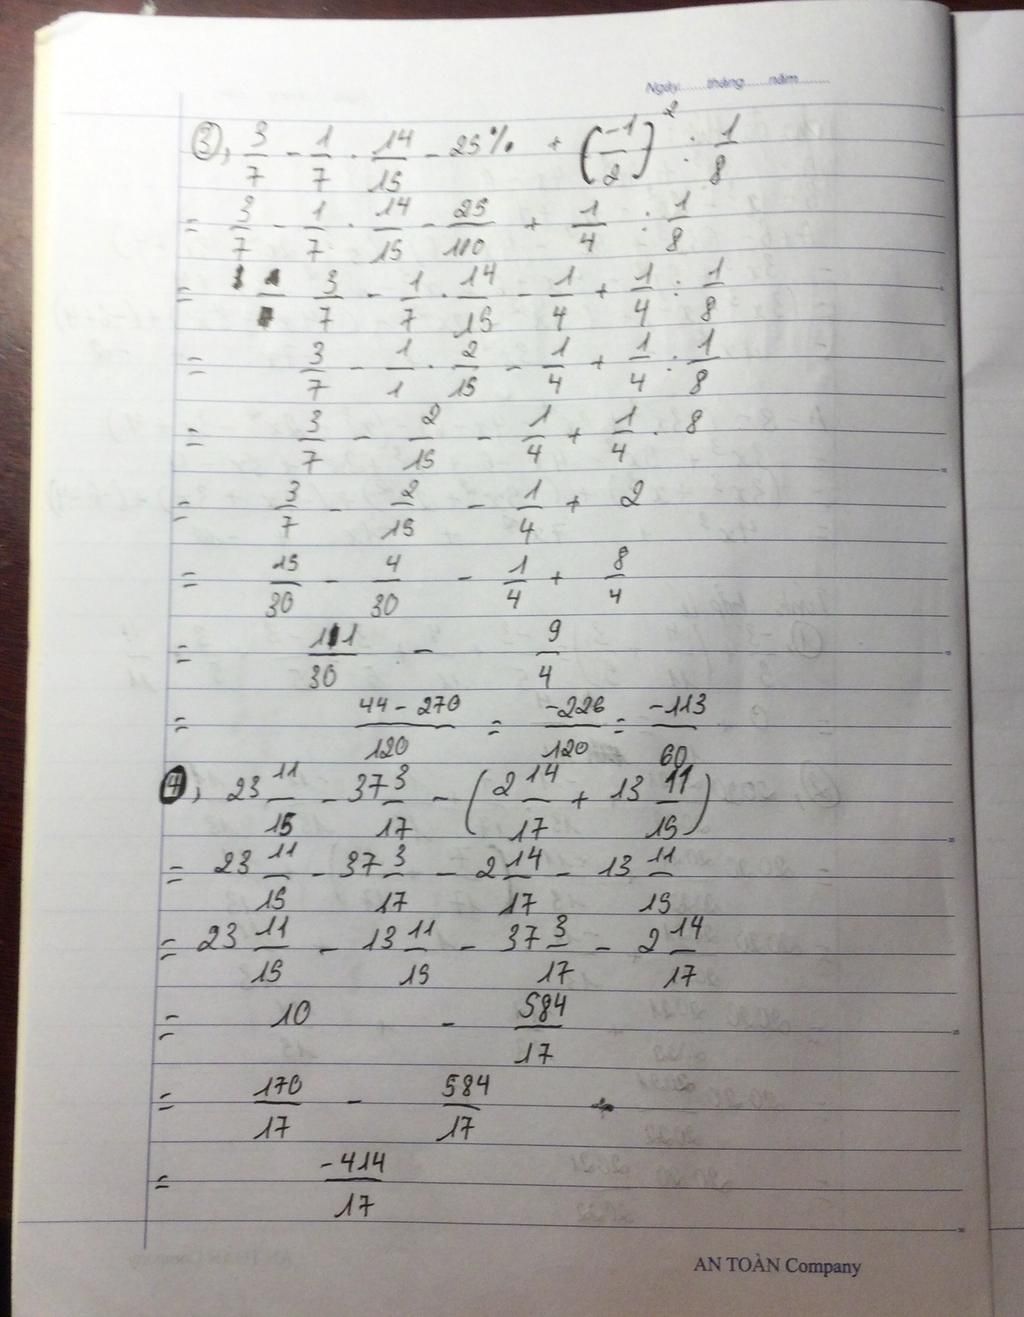 Ngày.......tháng.......năm.........
③, 3/7 - 1/7 . 14/15 - 25% + (-1/2)² : 1/8
= 3/7 - 1/7 . 14/15 - 25/100 + 1/4 : 1/8
= 3/7 - 1/7 . 14/15 - 1/4 + 1/4 : 1/8
= 3/7 - 1/1 . 2/15 - 1/4 + 1/4 : 1/8
= 3/7 - 2/15 - 1/4 + 1/4 . 8
= 3/7 - 2/15 - 1/4 + 2
= 15/30 - 4/30 - 1/4 + 8/4
= 11/30 - 9/4
= 44 - 270/120 = -226/120 = -113/60
④, 23 11/15 - 37 3/17 - (2 14/17 + 13 11/15)
= 23 11/15 - 37 3/17 - 2 14/17 - 13 11/15
= 23 11/15 - 13 11/15 - 37 3/17 - 2 14/17
= 10 - 584/17
= 170/17 - 584/17
= -414/17
AN TOÀN Company